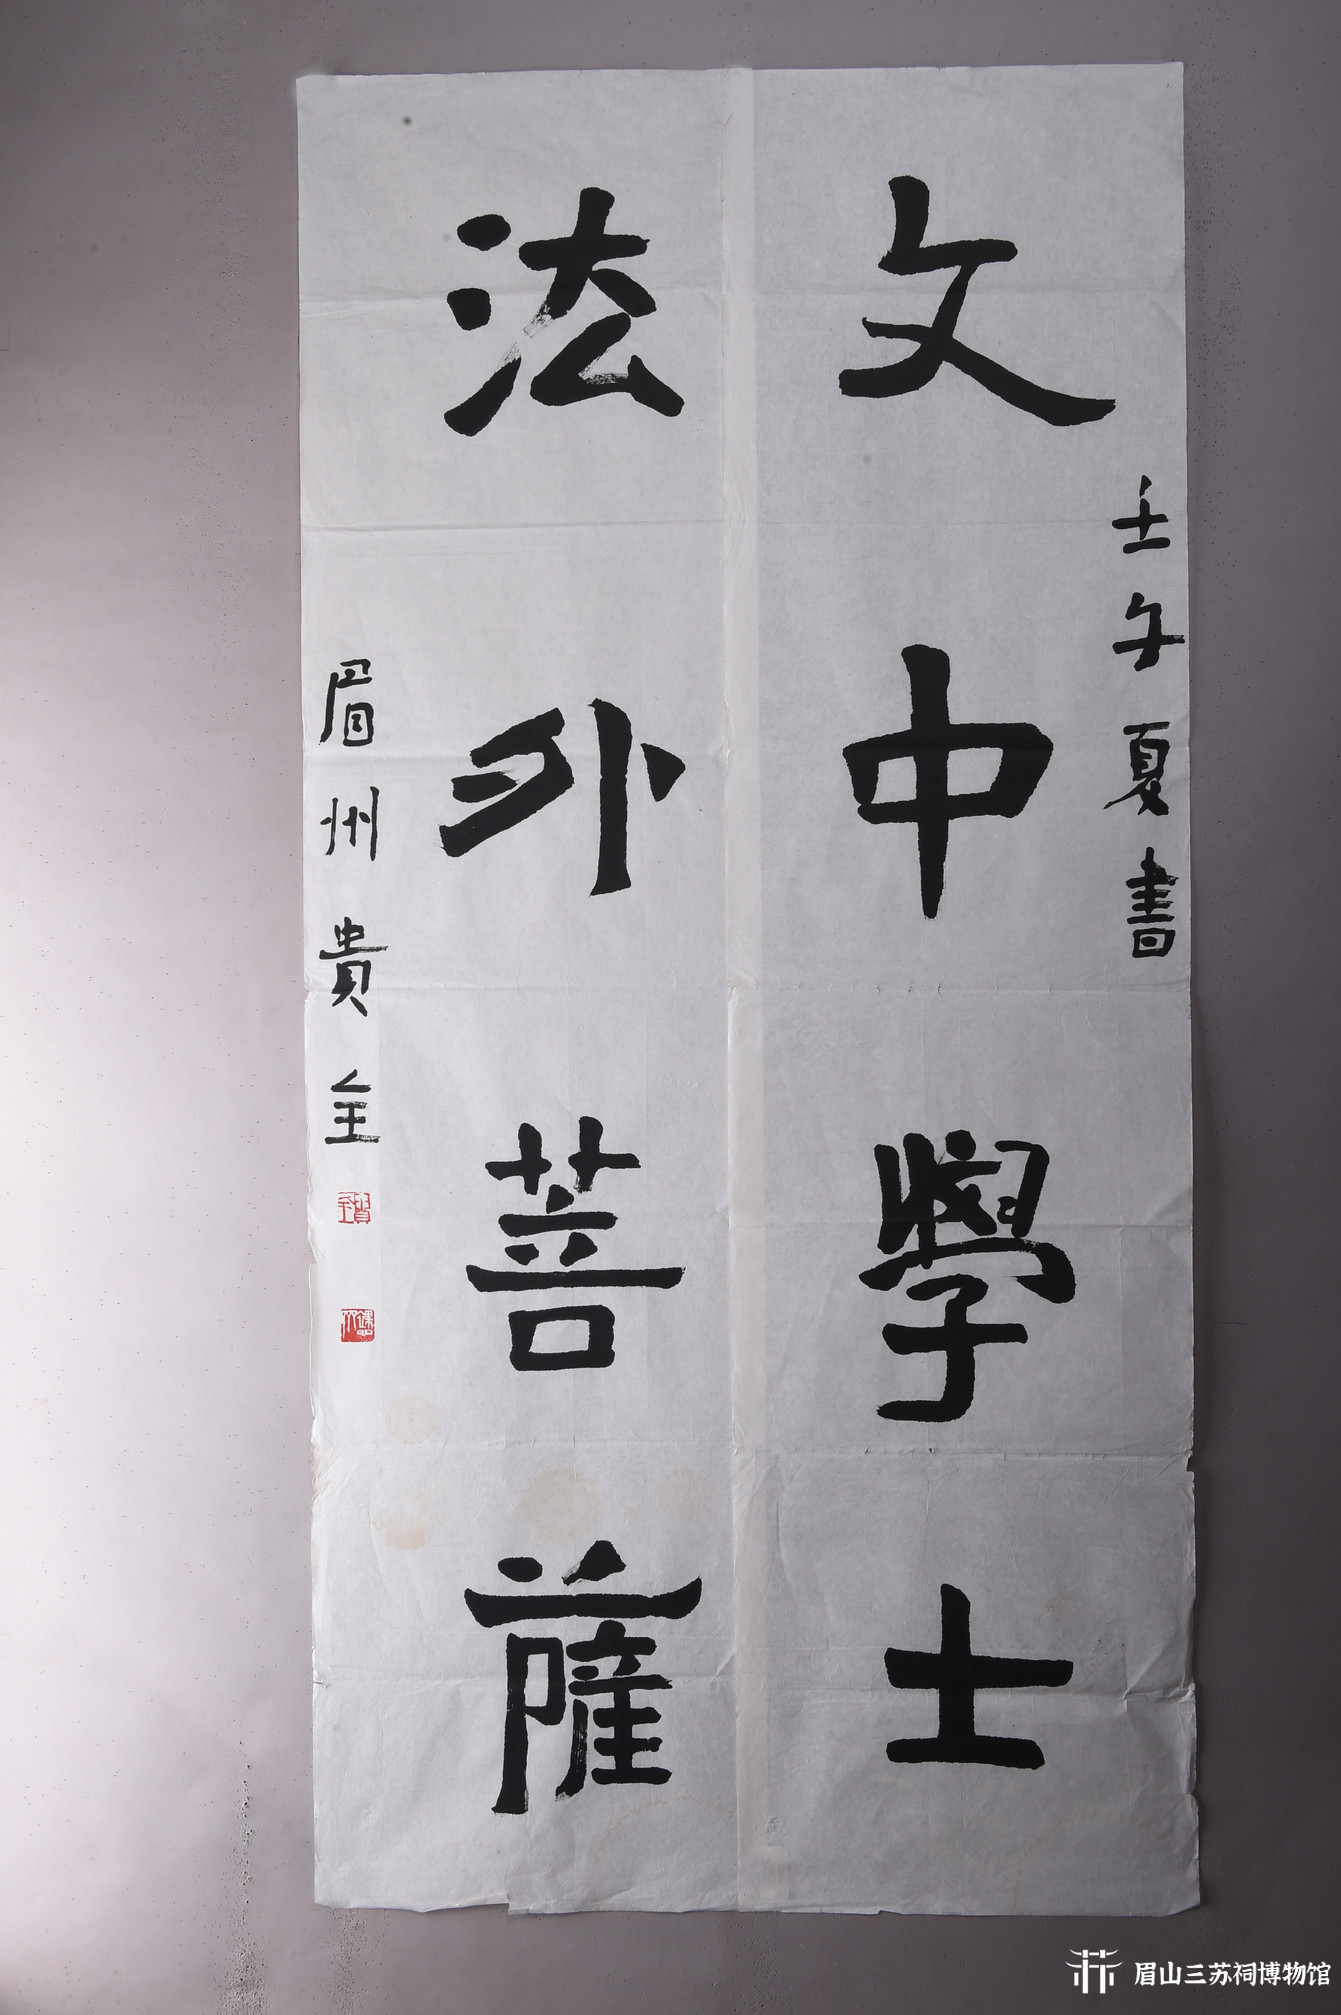 壬午夏書
文中學士
法外菩薩
眉州貴全
眉山三苏祠博物馆